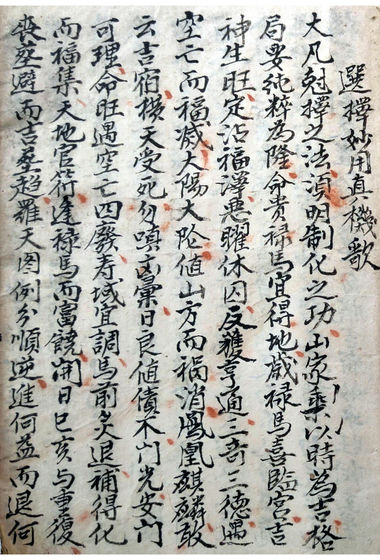 選擇妙用真機歌
大凡尅擇之法須明制化之功山家乘以時為吉格
局要純粹為隆命貴禄馬宜得地歲禄馬喜臨宮吉
神生旺定沾福澤惡曜休囚反獲亨通三奇三德遇
空亡而福减太陽太陰值山方而禍消鳳凰麒麟敢
云吉宿横天受死勿嗔凶彙日艮值債木門光安門
可理命旺遇空亡四發寿域宜調馬前炙退補得化
而福集天地官符逢禄馬而富饒開日巳亥与重復
喪塟避而吉塟趋羅天图例分順逆進何益而退何